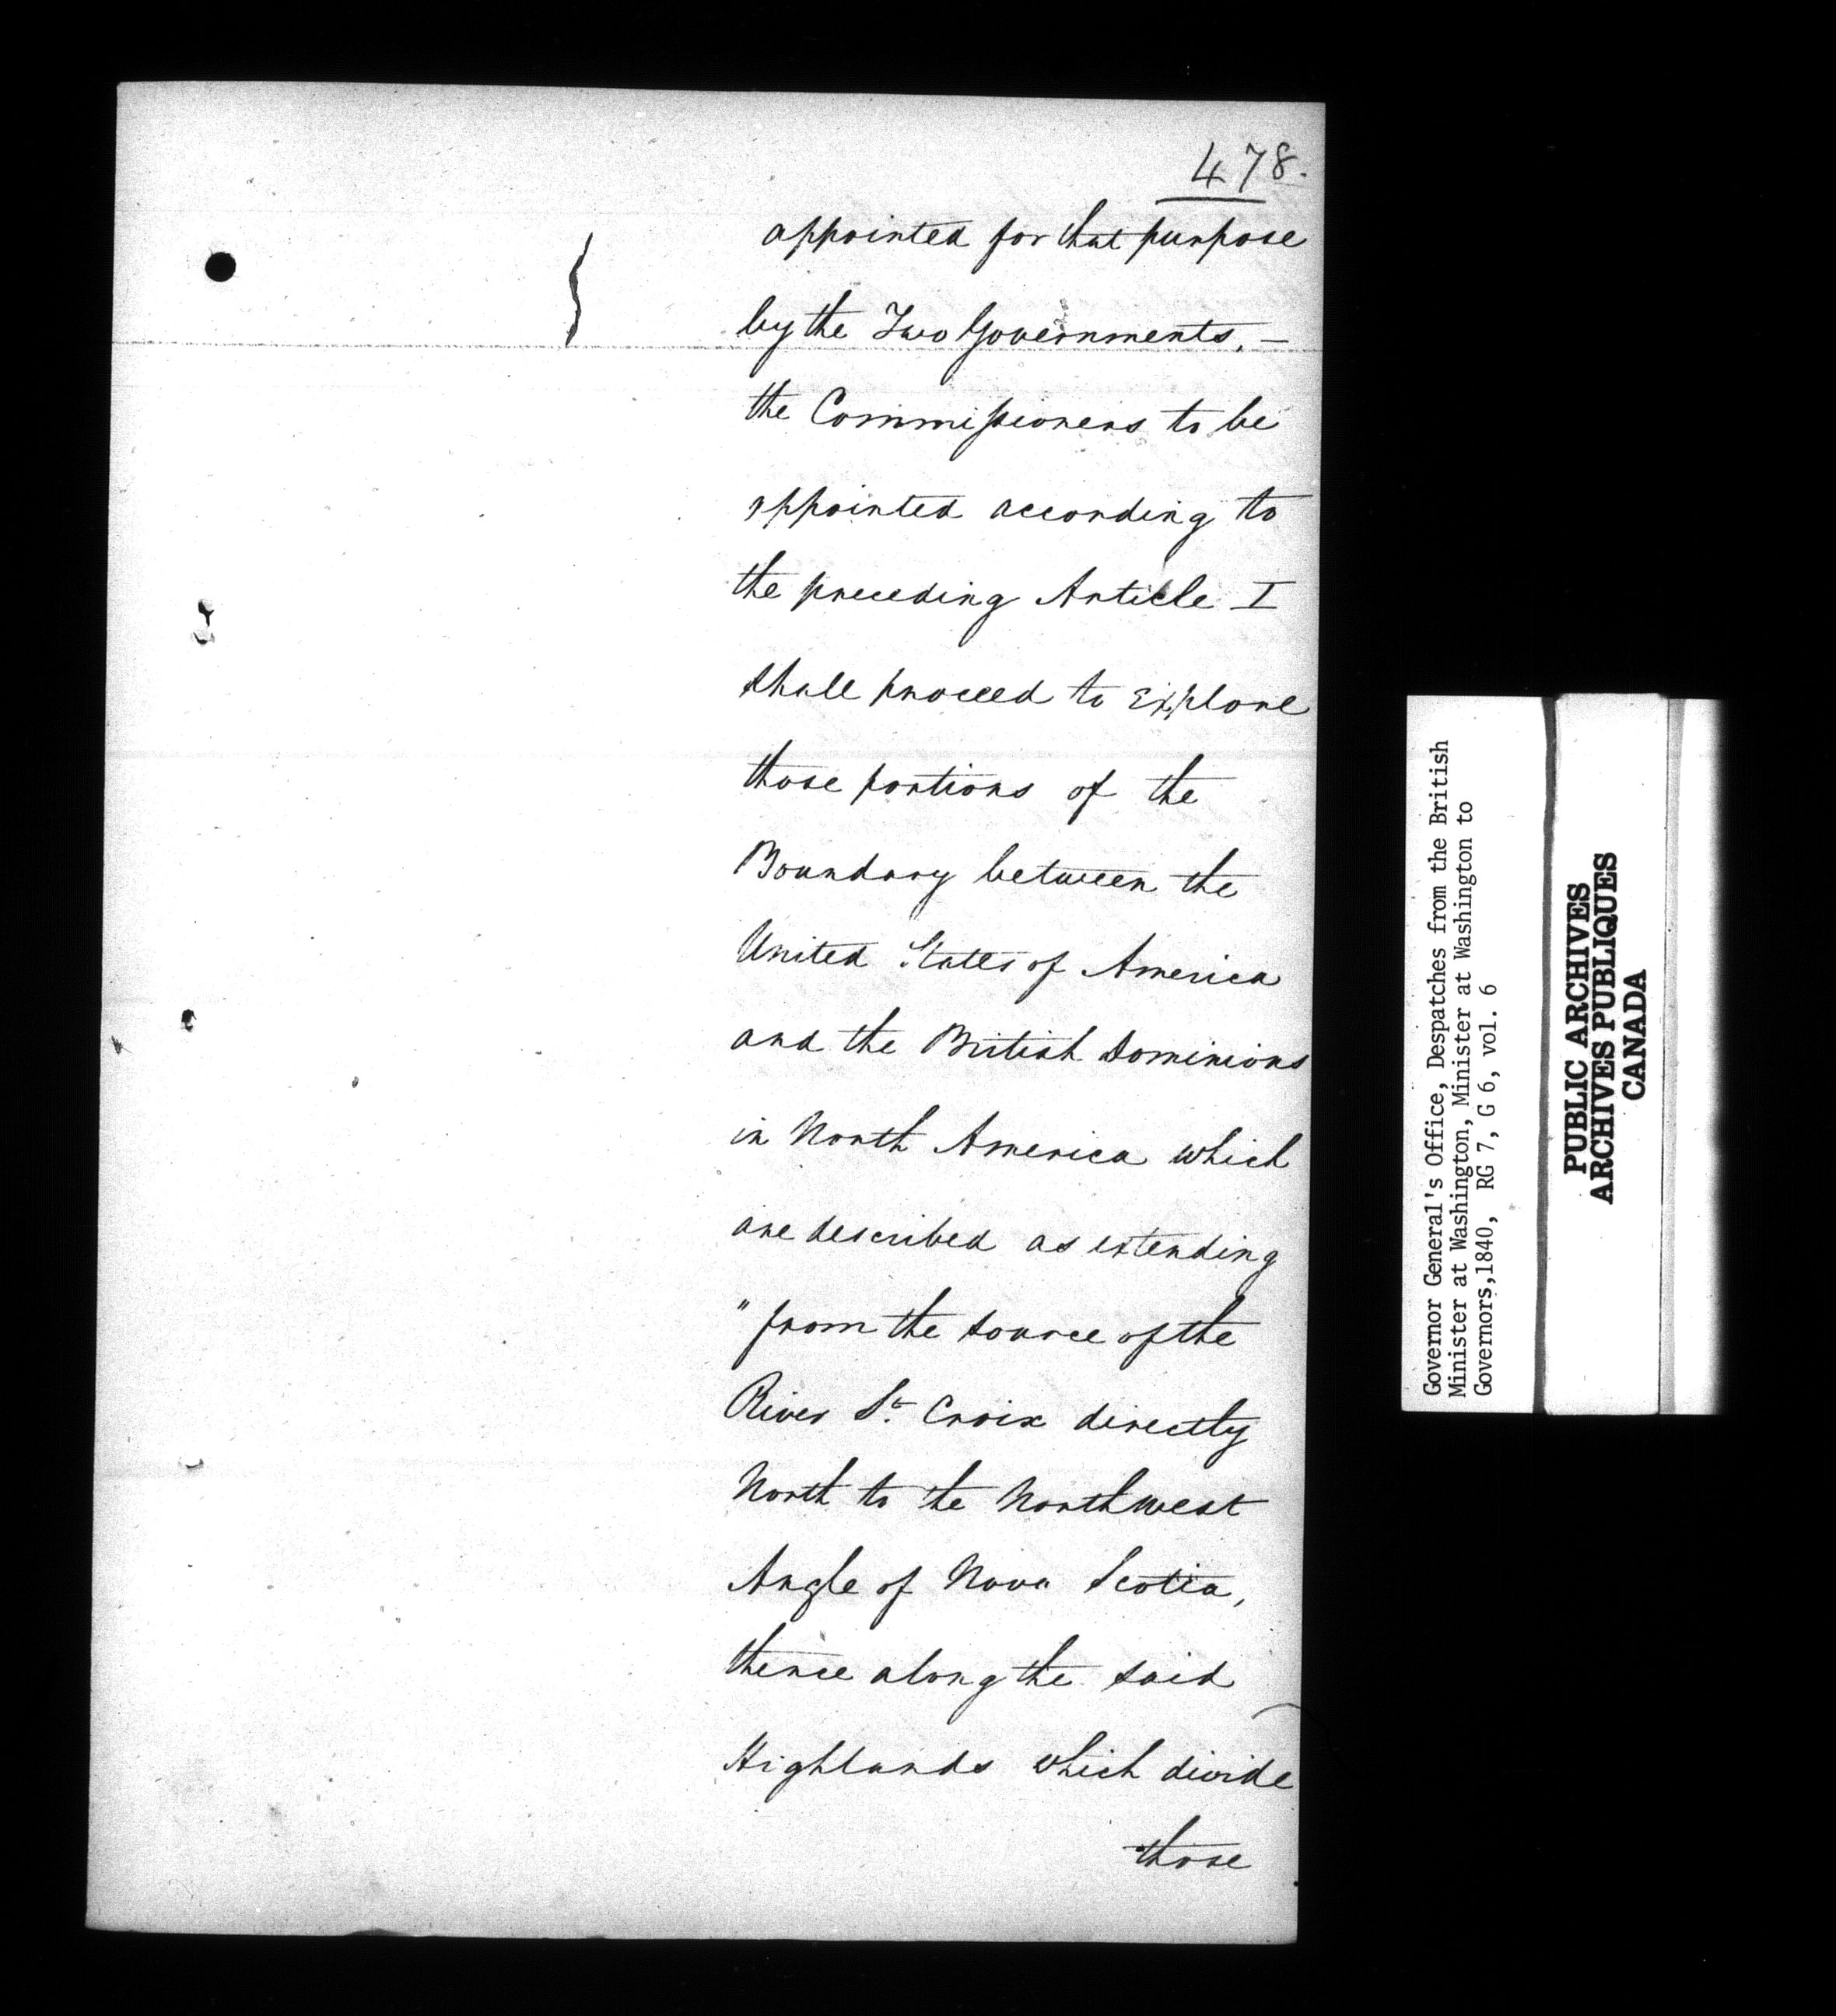 478.
appointed for that purpose
by the Two Governments. —
the Commissioners to be
appointed according to
the preceding Article I
shall proceed to Explore
those portions of the
Boundary between the
United States of America
and the British Dominions
in North America which
are described as extending
"from the source of the
River St. Croix directly
North to the Northwest
Angle of Nova Scotia,
thence along the said
Highlands which divide
those
Governor General's Office, Despatches from the British
Minister at Washington, Minister at Washington to
Governors,1840, RG 7, G 6, vol. 6
PUBLIC ARCHIVES
ARCHIVES PUBLIQUES
CANADA